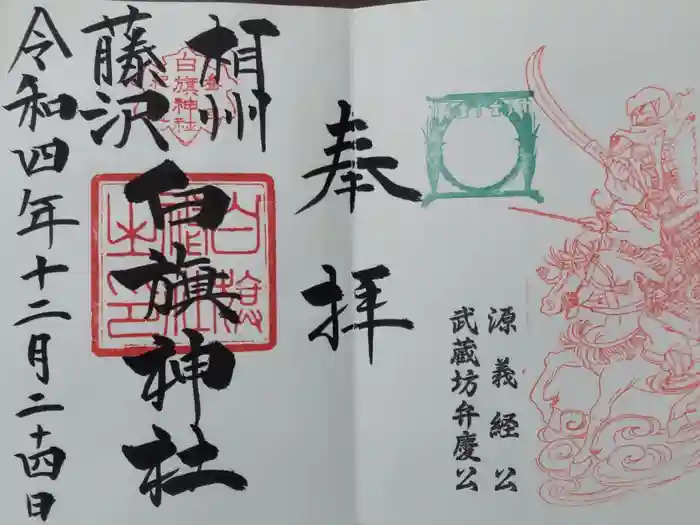 奉拝
源義経公
武蔵坊弁慶公
相州
藤沢
白旗神社
白旗神社
令和四年十二月二十四日